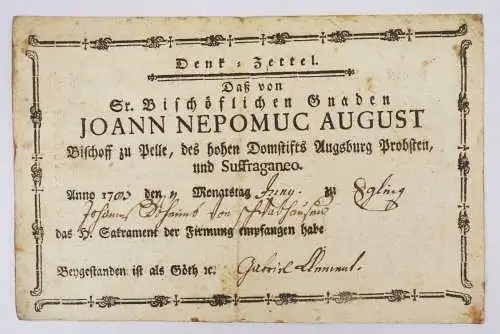 Denk-Zettel.
Daß von
Sr. Bischöflichen Gnaden
JOANN NEPOMUC AUGUST
Bischoff zu Pelle, des hohen Domstifts Augsburg Probsten,
und Suffraganeo.
Anno den Monatstag Juny. zu Egling
Johannes von
das H. Sakrament der Firmung empfangen habe
Beygestanden ist als Göth ꝛc. Gabriel Clement.